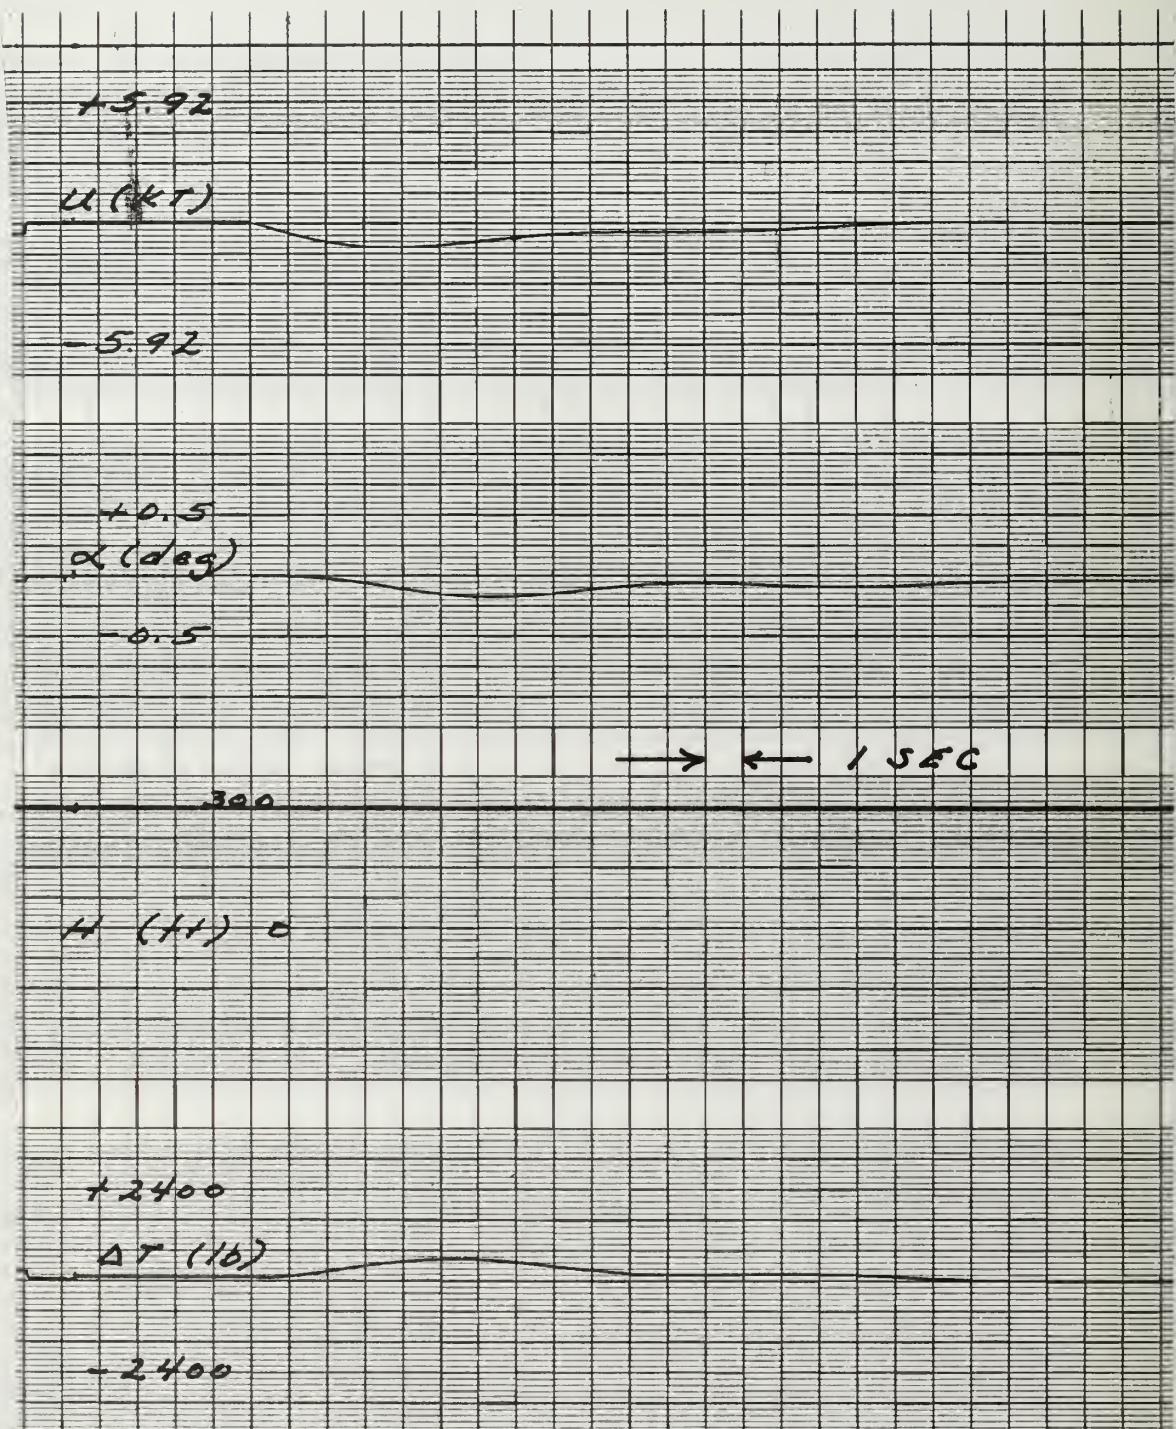 +5.92
u (KT)
-5.92
+0.5
α (deg)
-0.5
1 SEC
300
H (ft) 0
+2400
ΔT (lb)
-2400